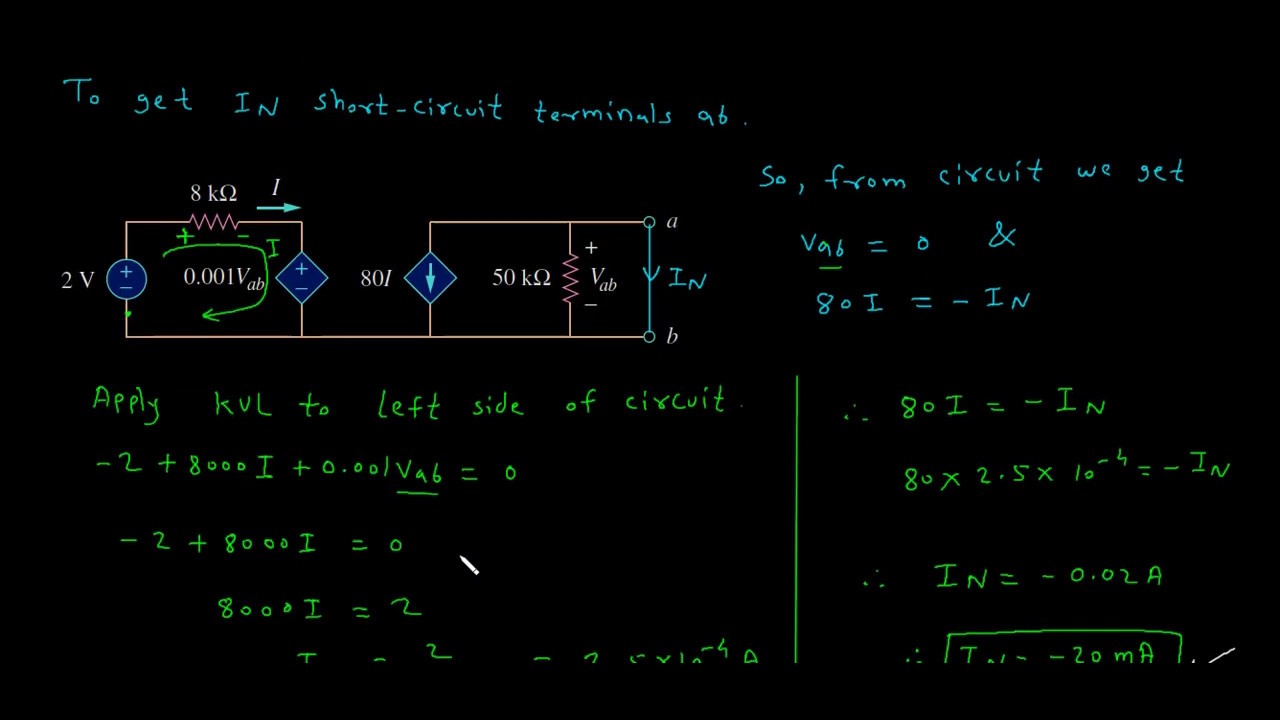 To get IN short-circuit terminals ab.
So, from circuit we get
Vab = 0 &
80I = - IN
8 kΩ
I
+ - I
2 V
+ −
0.001Vab
+ −
80I
50 kΩ
+
Vab
−
a
IN
b
Apply KVL to left side of circuit.
-2 + 8000I + 0.001Vab = 0
-2 + 8000I = 0
8000I = 2
∴ 80I = - IN
80 × 2.5 × 10⁻⁴ = - IN
∴ IN = - 0.02A
∴ IN = -20 mA